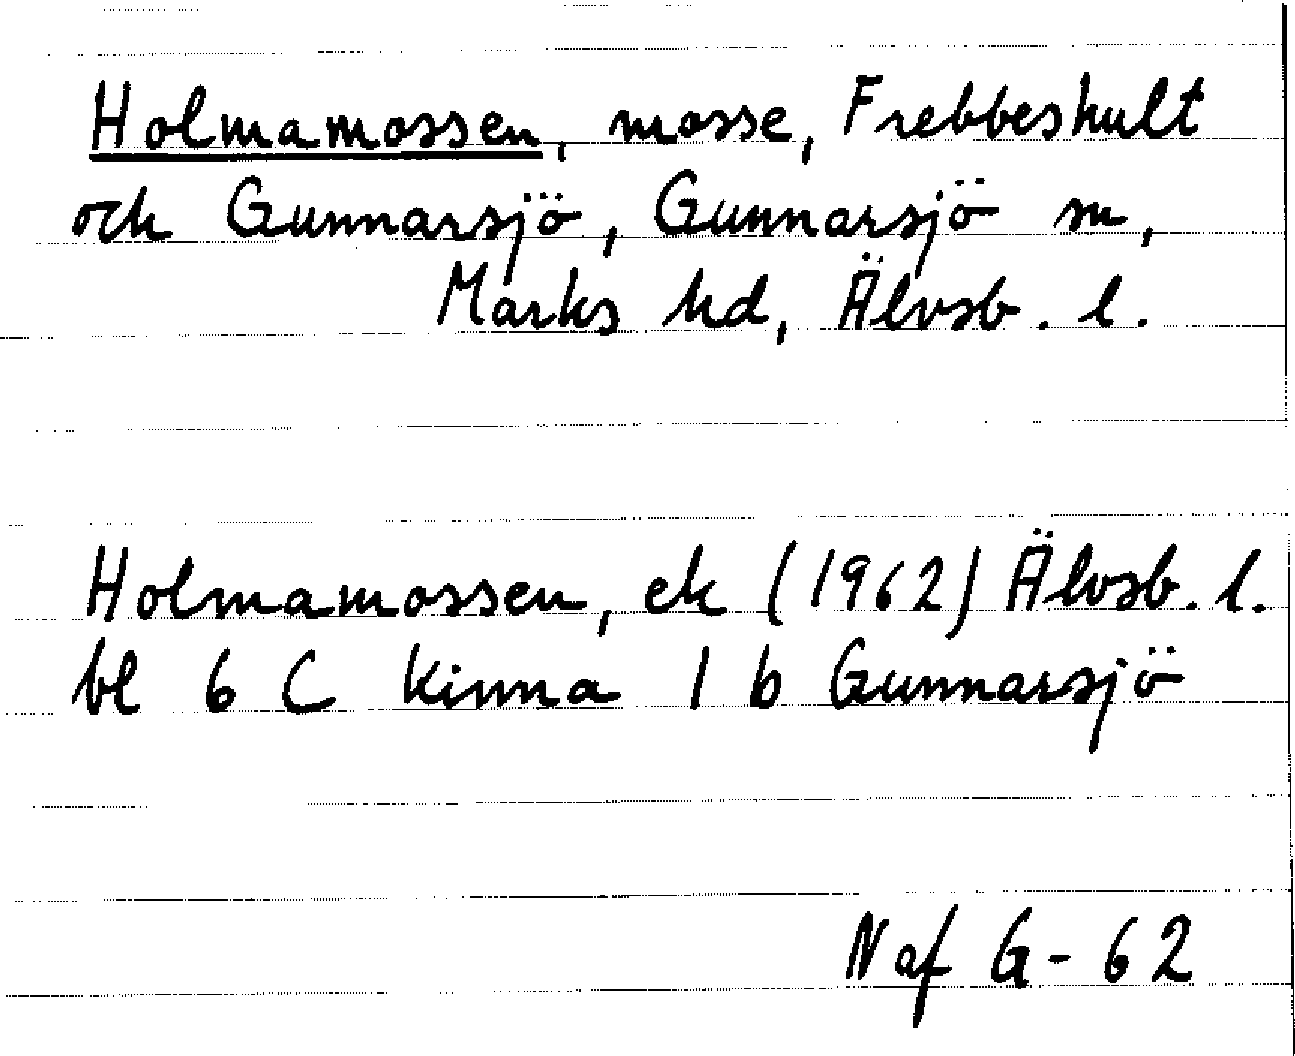 Holmamossen, mosse, Frebbeshult
och Gunnarsjö, Gunnarsjö sn,
Marks hd, Älvsb. l.
Holmamossen, ek (1962) Älvsb. l.
bl 6 C Kinna 1 b Gunnarsjö
Naf G-62